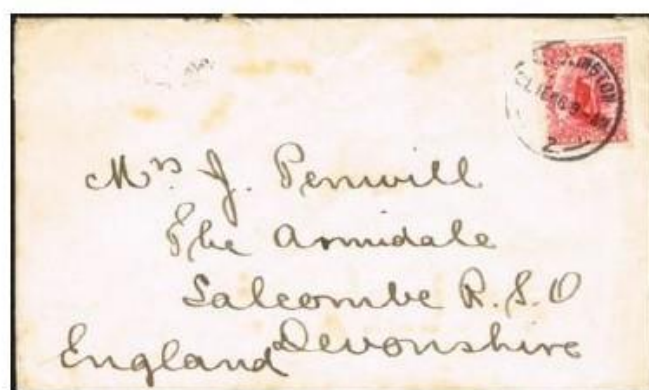 WELLINGTON
2
Mrs J. Penwill
The Armidale
Salcombe R.S.O
England Devonshire